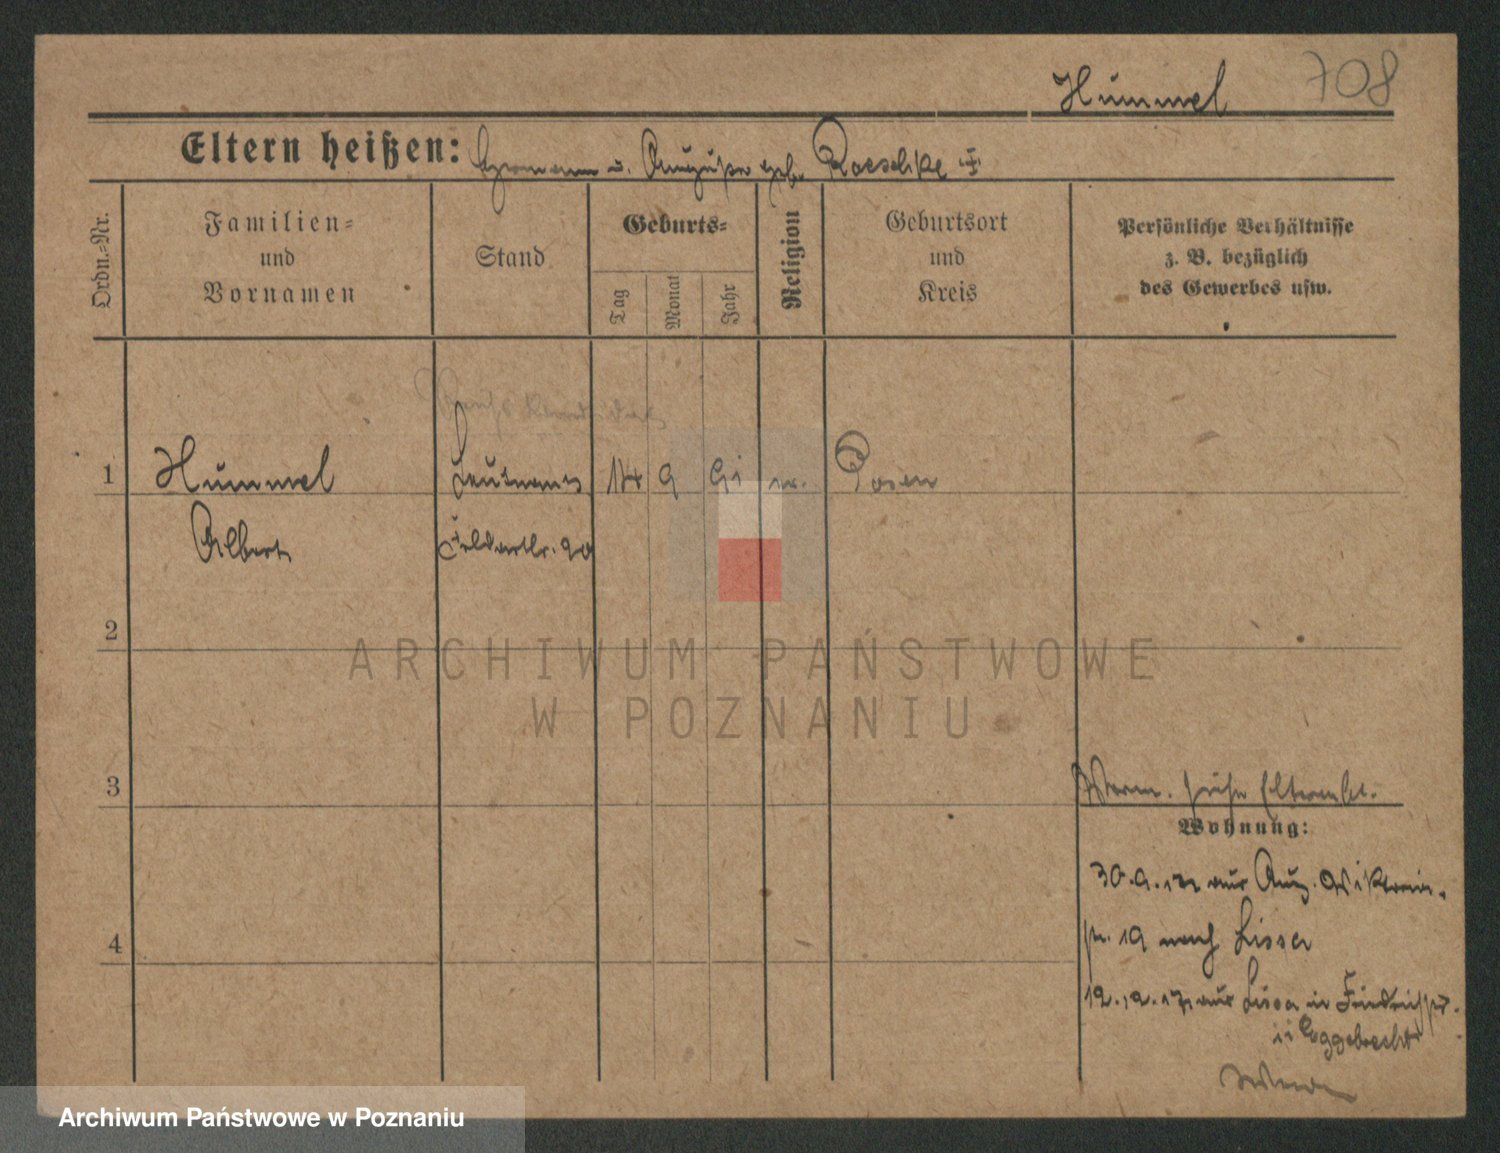 Hummel 708
Eltern heißen: Hermann u. Auguste geb. Roeschke
Ordn.-Nr.
Familien-
und
Vornamen
Stand
Geburts-
Tag
Monat
Jahr
Religion
Geburtsort
und
Kreis
Persönliche Verhältnisse
z. B. bezüglich
des Gewerbes usw.
1 Hummel Leutnant 14 9 91 ev. Posen
Albert Feldartlr. 20
2
3
4
Wohnung:
30.9. aus Aug. Viktoria-
str. 19 nach Lissa
12.12. aus Lissa in Friedrichstr.
Eggebrecht
ARCHIWUM PAŃSTWOWE
W POZNANIU
Archiwum Państwowe w Poznaniu